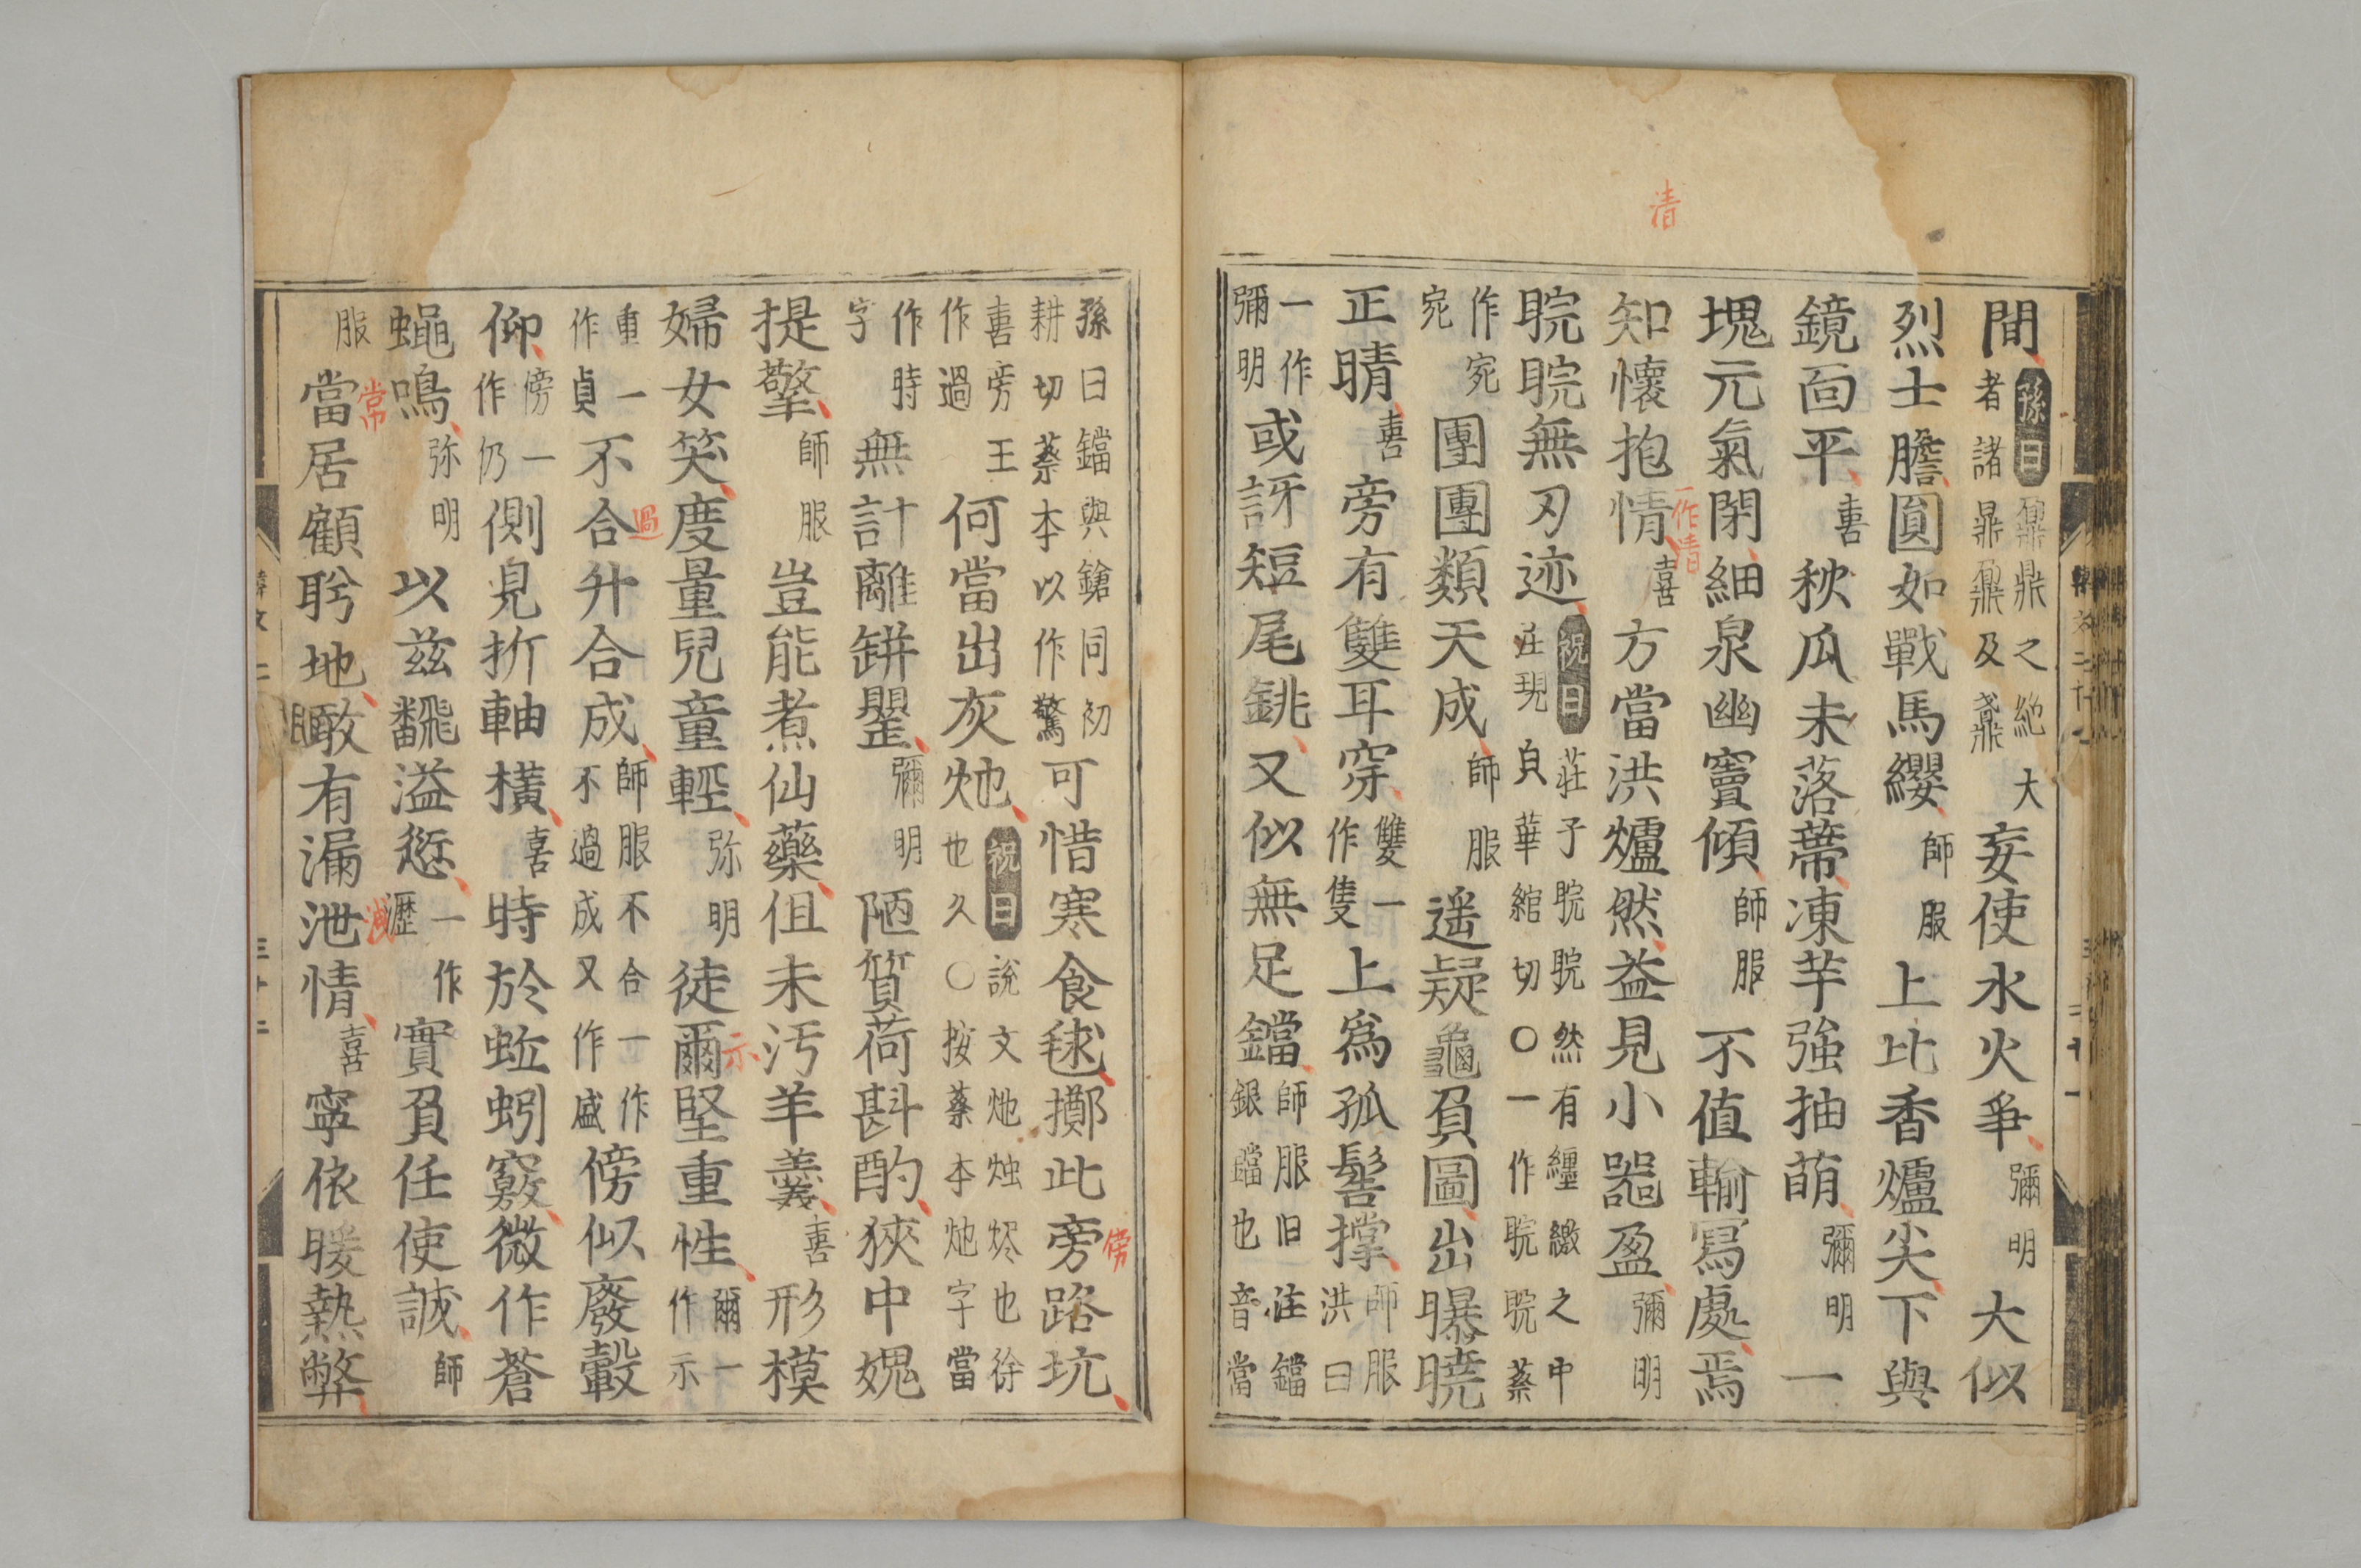 間孫曰鼐鼎之絶大者諸鼎鼐及鼒妄使水火爭彌明大似
烈士膽圓如戰馬纓師服上比香爐尖下與
鏡面平喜秋瓜未落蔕凍芋強抽萌彌明一
塊元氣閉細泉幽竇傾師服不值輸寫處焉
知懷抱情喜方當洪爐然益見小器盈彌明
睆睆無刃迹祝曰莊子睆睆然有纆繳之中莊現貟華綰切〇一作睆睆蔡
作宛宛團團類天成師服遥疑龜負圖出曝曉
正晴喜旁有雙耳穿雙一作隻上爲孤髻撑師服洪曰
一作彌明或訝短尾銚又似無足鐺師服旧注鐺銀鐺也音當
清
一作清
孫曰鐺與鎗同初耕切蔡本以作驚可惜寒食毬擲此旁路坑
喜旁王作過何當出灰灺祝曰說文灺燭烬也徐也久〇按蔡本灺字當
作時字無計離缾罌彌明陋質荷斟酌狹中媿
提擎師服豈能煮仙藥但未汚羊羹喜形模
婦女笑度量兒童輕弥明徒爾堅重性爾一作示
重一作貞不合升合成師服不合一作不過成又作盛傍似廢轂
仰傍一作仍側見折軸橫喜時於蚯蚓竅微作蒼
蠅鳴弥明以兹飜溢愆一作瀝實負任使誠師
服當居顧眄地敢有漏泄情喜寧依暖熱弊
傍
過
示
常
瞰
韓文二
三十二